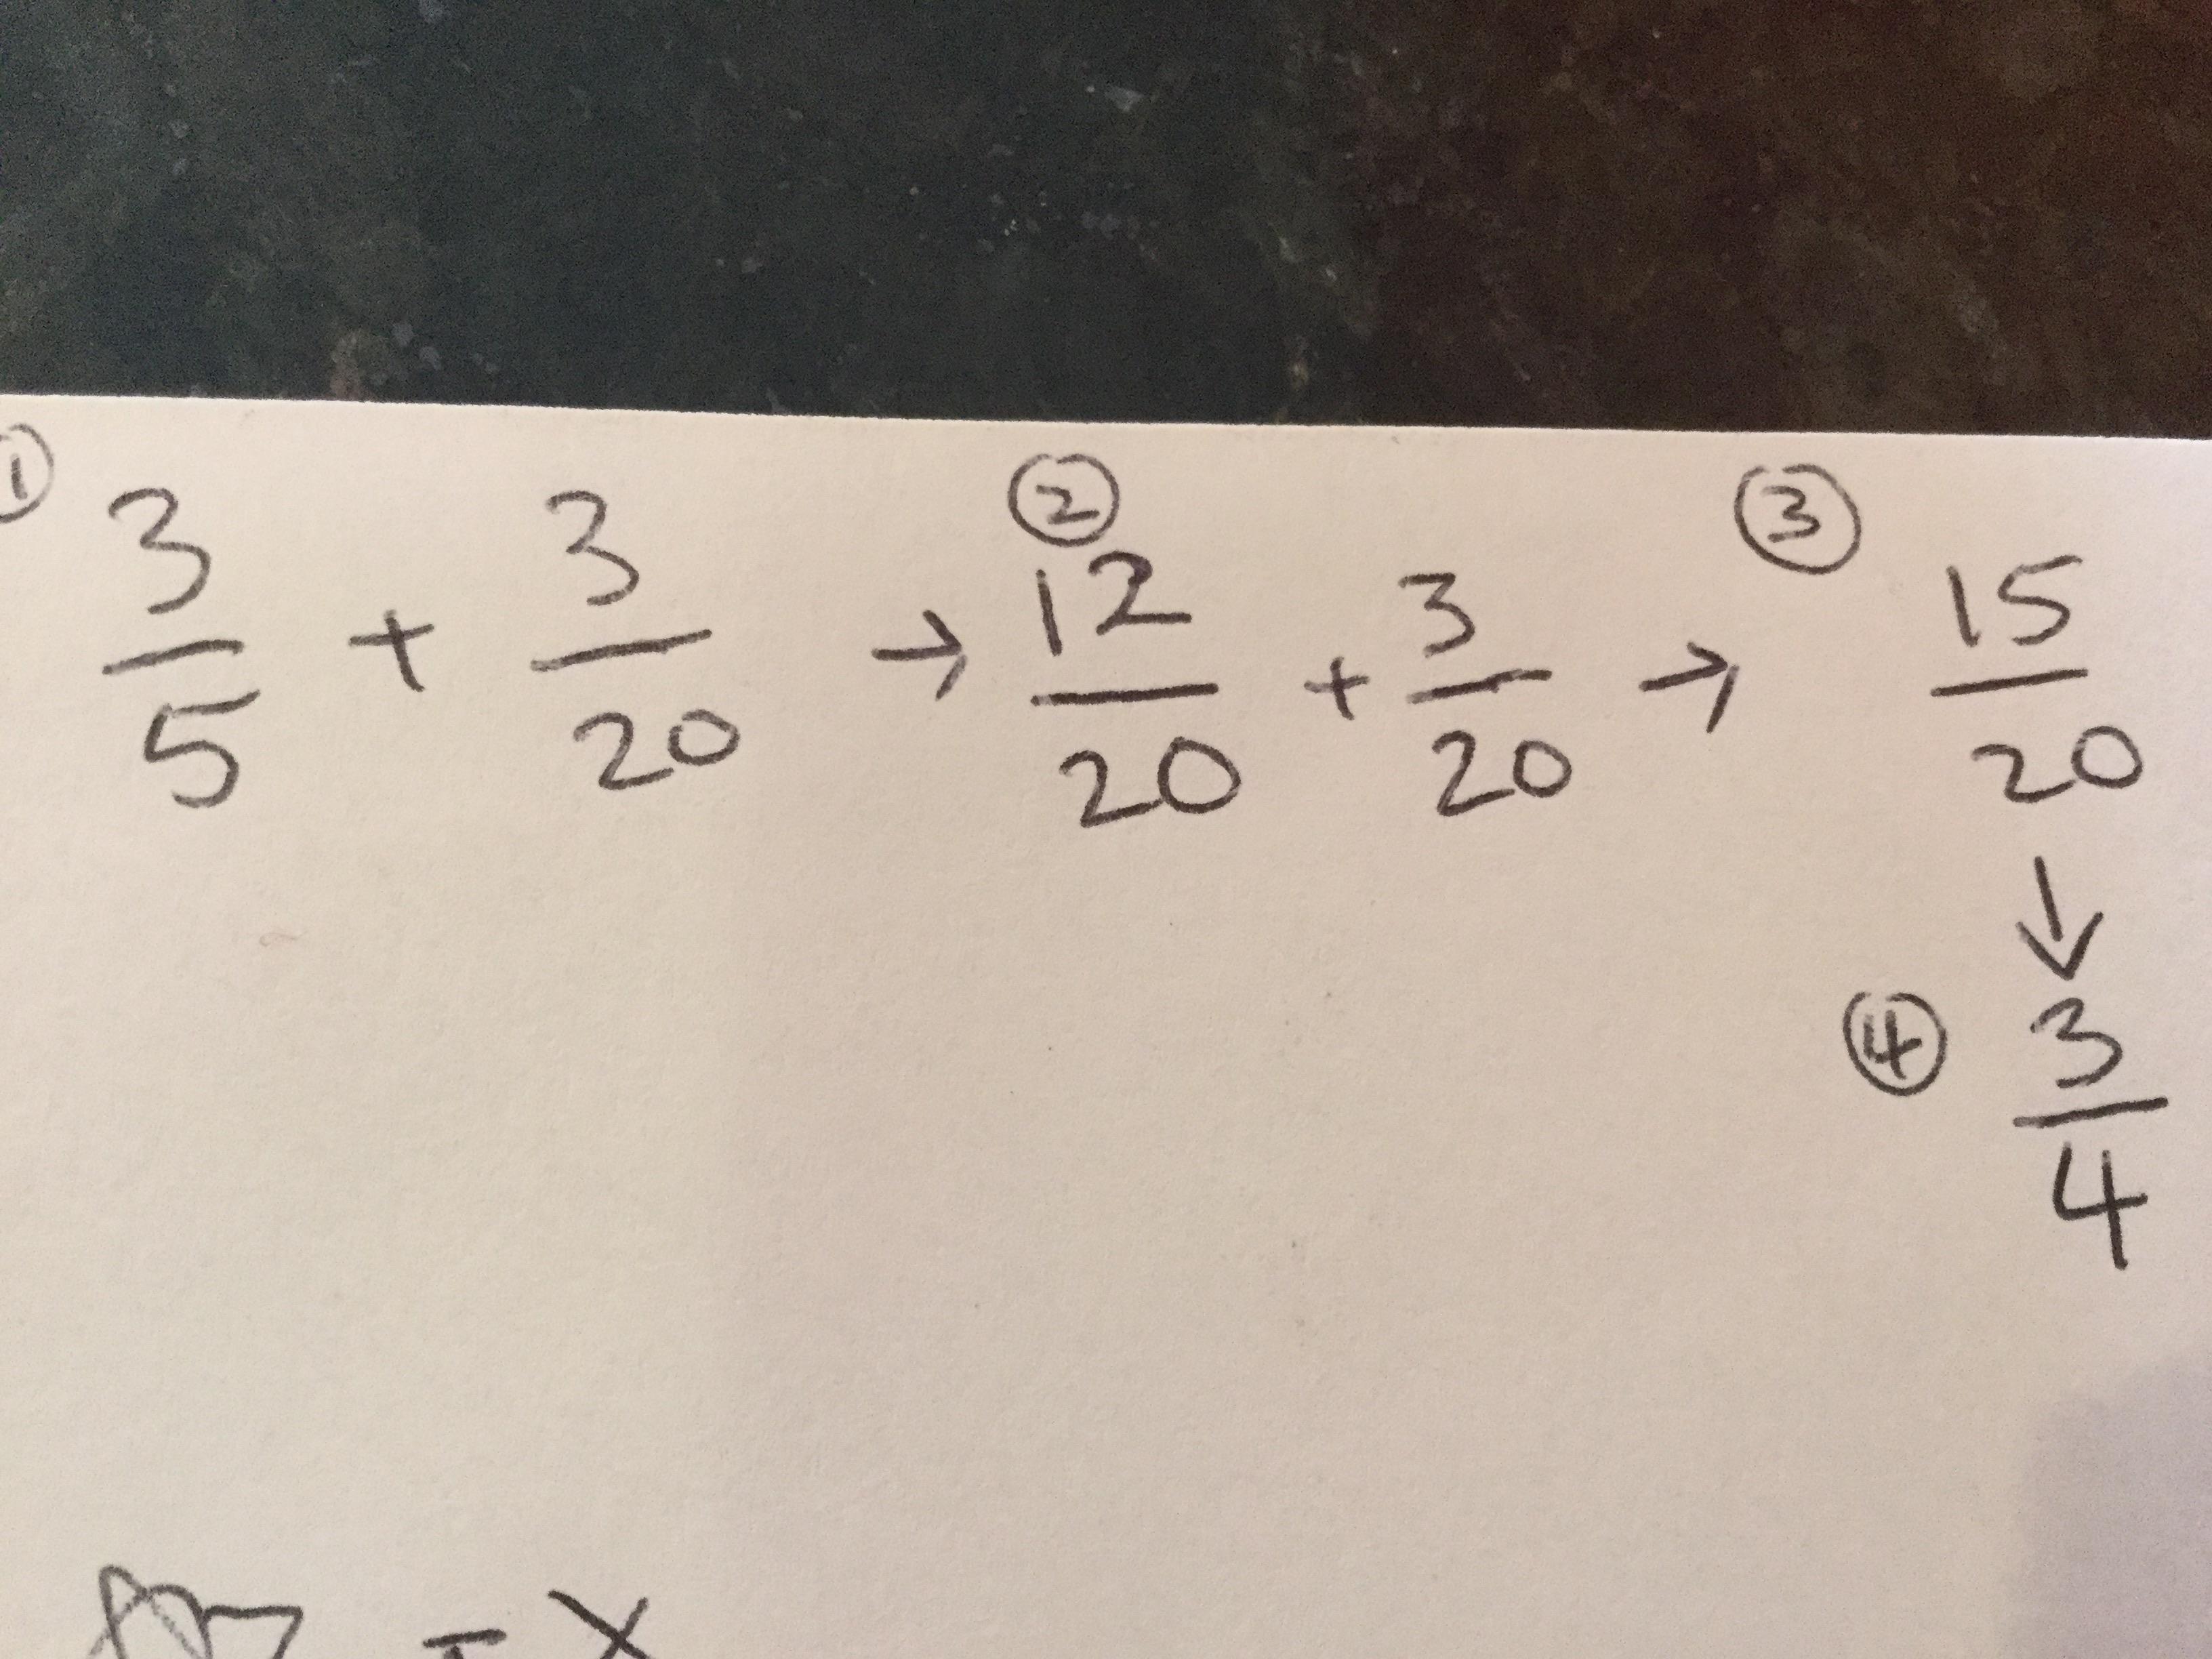 ① 3/5 + 3/20 → ② 12/20 + 3/20 → ③ 15/20
↓
④ 3/4